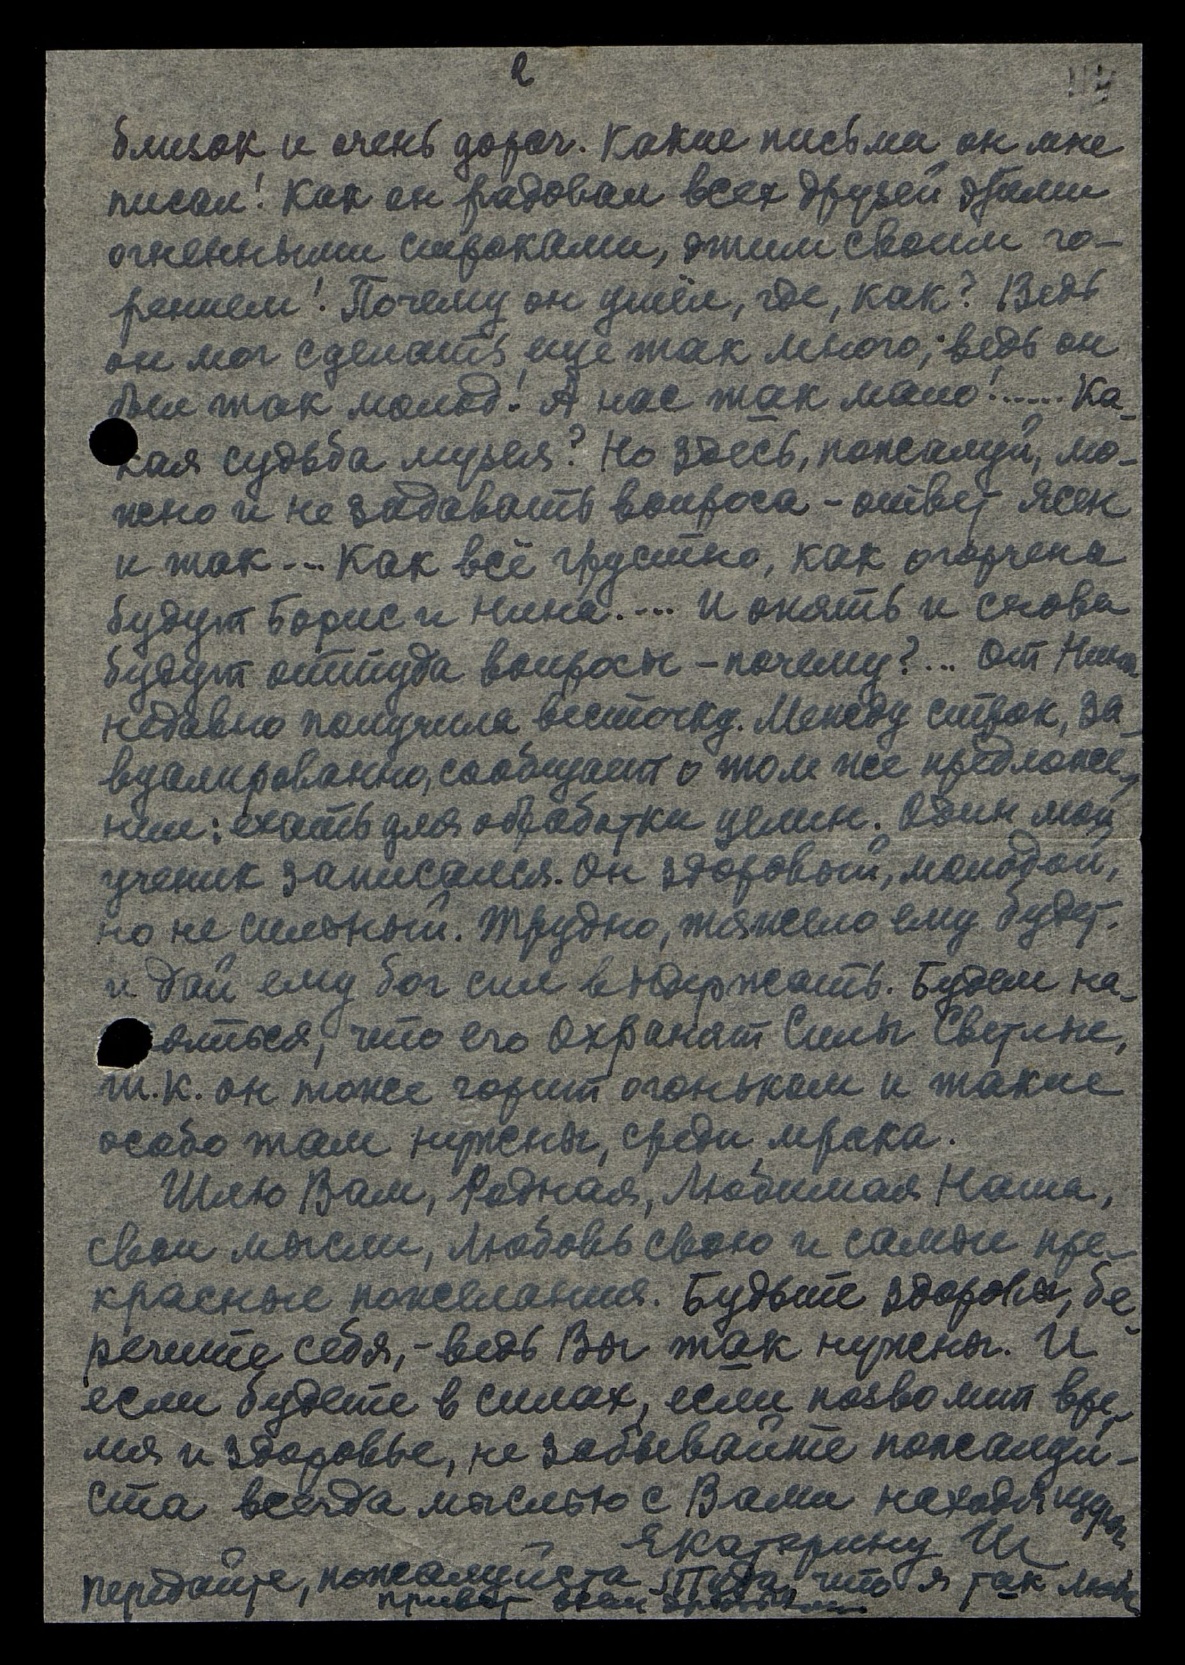 2
близок и очень дорог. Какие письма он мне
писал! Как он радовал всех друзей этими
огненными строками, этим своим го-
рением! Почему он ушёл, где, как? Ведь
он мог сделать еще так много; ведь он
был так молод! А нас так мало!..... Ка-
кая судьба музея? Но здесь, пожалуй, мо-
жно и не задавать вопроса - ответ ясен
и так ... Как всё грустно, как огорчена
будут Борис и Нина.... И опять и снова
будут оттуда вопросы - почему?... От Нины
недавно получила весточку. Между строк, за-
вуалированно, сообщает о том же предложе-
нии: ехать для обработки целин. Один мой
ученик записался. Он здоровый, молодой,
но не сильный. Трудно, тяжело ему будет.
и дай ему бог сил выдержать. Будем на-
яться, что его охранят Силы Светлые,
т.к. он тоже горит огоньком и такие
особо там нужны, среди мрака.
Шлю Вам, Родная, Любимая Наша,
свои мысли, любовь свою и самые пре-
красные пожелания. Будьте здоровы, бе-
регите себя, - ведь Вы так нужны. И
если будете в силах, если позволит вре-
мя и здоровье, не забывайте пожалуй-
ста всегда мыслью с Вами находящуюся
Екатерину Ш
Передайте, пожалуйста "Туда", что я так люблю
привет всем